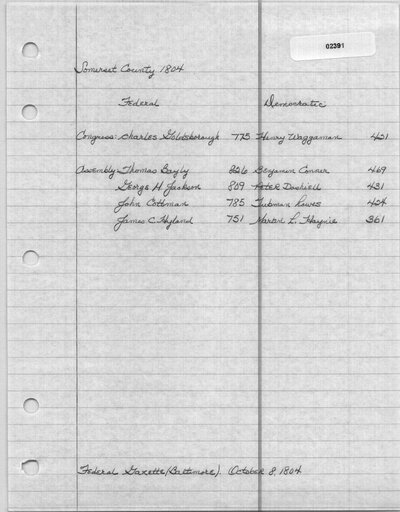 02391
Somerset County 1804
Federal Democratic
Congress: Charles Goldsborough 775 Henry Waggaman 421
Assembly Thomas Bayly 826 Benjamin Conner 469
George H. Jackson 809 Peter Dashiell 431
John Cottman 785 Tubman Lowes 424
James C. Hyland 751 Martin L. Haynie 361
Federal Gazette (Baltimore). October 8, 1804